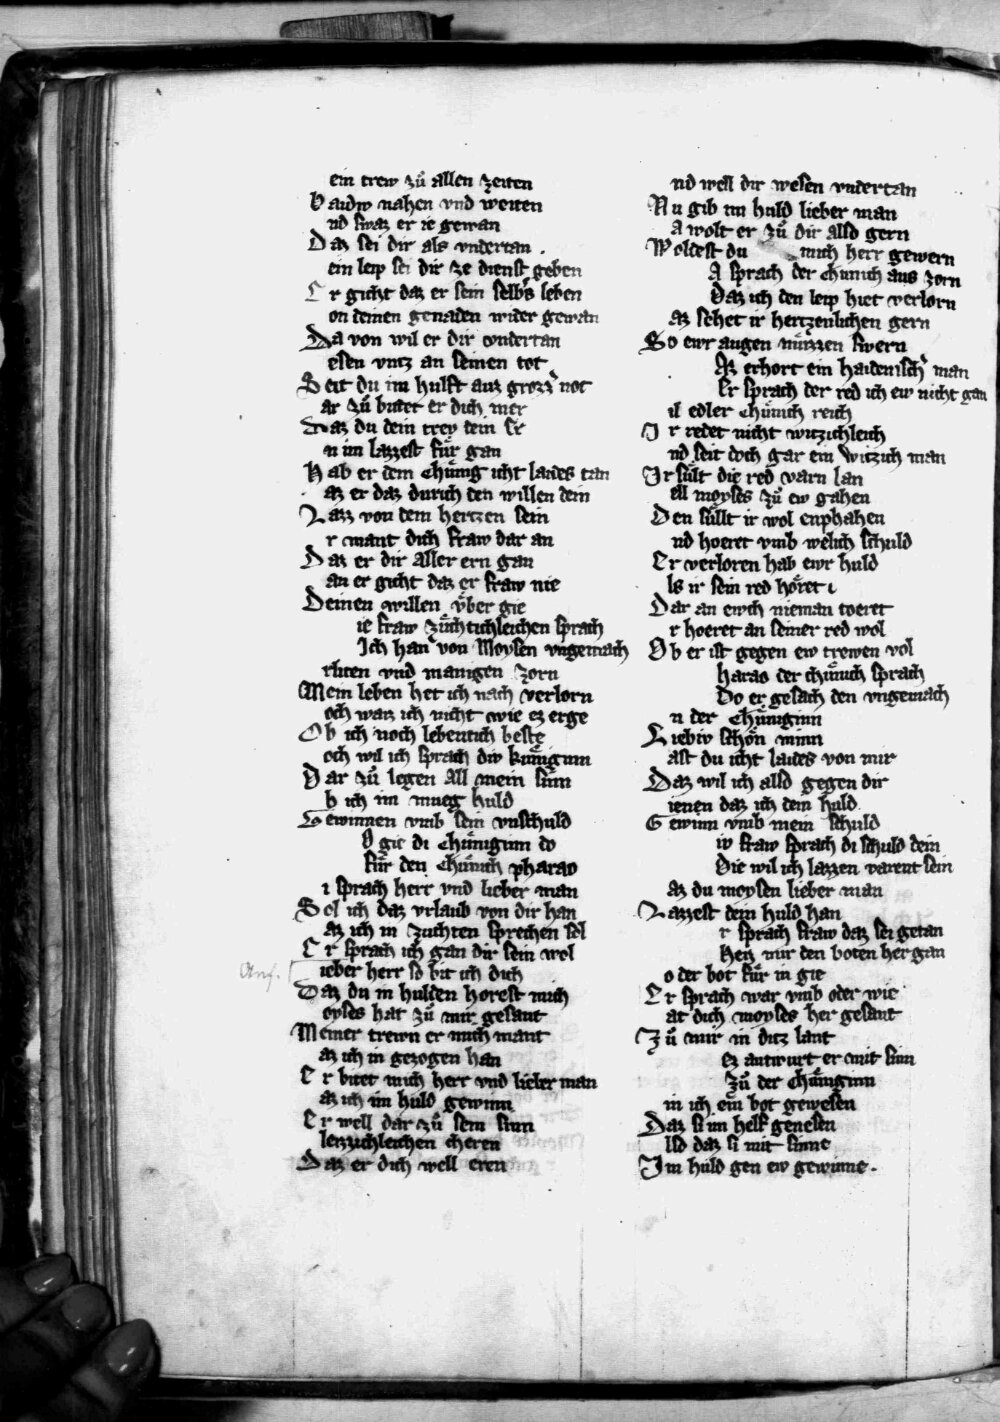 ein trew zů allen zeiten
Haidnͥ nahen vnd weiten
nd swaz er ie gewan
Daz sei dir als vndertan .
ein leip sei dir ze dienst geben
Er gicht daz er sein selbs leben
on deinen genaden wider gewan
Da von wil er dir vndertan
esen vntz an seinen tot
Seit du im hulft auz grozzer not
ar zů bittet er dich mer
Daz du dein trev dein Er
n im lazzest fůr gan
Hab er dem chůng icht laides tan
az er daz durich den willen dein
Lazz von dem hertzen sein
r mant dich fraw dar an
Daz er dir aller ern gan
an er gicht daz er fraw nie
Deinen willen vͤber gie
ie fraw zůchtichleichen sprach
Ich han von Moysen vngemach
rliten vnd manigen zorn
Mein leben het ich nach verlorn
och waiz ich nicht wie ez erge
Ob ich noch lebentich beste
och wil ich sprach div kuniginn
Dar zů legen all mein sinn
b ich im mueg huld
Gewinnen vmb sein vnschuld
O gie di Chůniginn do
fůr den Chůnich pharao
i sprach herr vnd lieber man
Sol ich daz vrlaub von dir han
az ich in zuchten sprechen sol
Er sprach ich gan dir sein wol
ieber herr so bit ich dich
Daz du in hulden horest mich
oyses hat zů mir gesant
Meiner trewn er mich mant
az ich in gezogen han
Er bitet mich herr vnd lieber man
az ich im huld gewinn
Er well dar zů sein sinn
letzichleichen cheren
Daz er dich well eren
nd well dir wesen vndertan
Nu gib im huld lieber man
a wolt er zů dir alld gern
Woldest du mich herr gewern
A sprach der chunich aus zorn
Daz ich den leip hiet verlorn
az sehet ir hertzenlichen gern
So ewr augen můzzen swern
Az erhort ein haidenischer man
Er sprach der red ich ew nicht gan
il edler chůnich reich
Ir redet nicht witzichleich
nd seit doch gar ein witzich man
Ir sůlt die red varn lan
ell moyses zů ew gahen
Den sůllt ir wol enphahen
nd hoeret vmb welich schuld
Er verloren hab ewr huld
ls ir sein red hőret
Dar an ewch nieman toeret
r hoeret an seiner red wol
Ob er ist gegen ew trewen vol
haras der chůnich sprach
Do er gesach den vngemach
n der Chůniginn
Liebiv schön minn
ast du icht laides von mir
Daz wil ich alld gegen dir
ienen daz ich dein huld
Gewinn vmb mein schuld
iv fraw sprach di schuld dein
Die wil ich lazzen varent sein
az du moysen lieber man
Lazzest dein huld han
r sprach fraw daz sei getan
Heiz mir den boten her gan
o der bot fůr in gie
Er sprach war vmb oder wie
at dich moyses her gesant
Zů mir in ditz lant
ez antwurt er mit sinn
Zů der Chůniginn
in ich ein bot gewesen
Daz si im helf genesen
lso daz si mit sinne
Im huld gen ew gewinne .